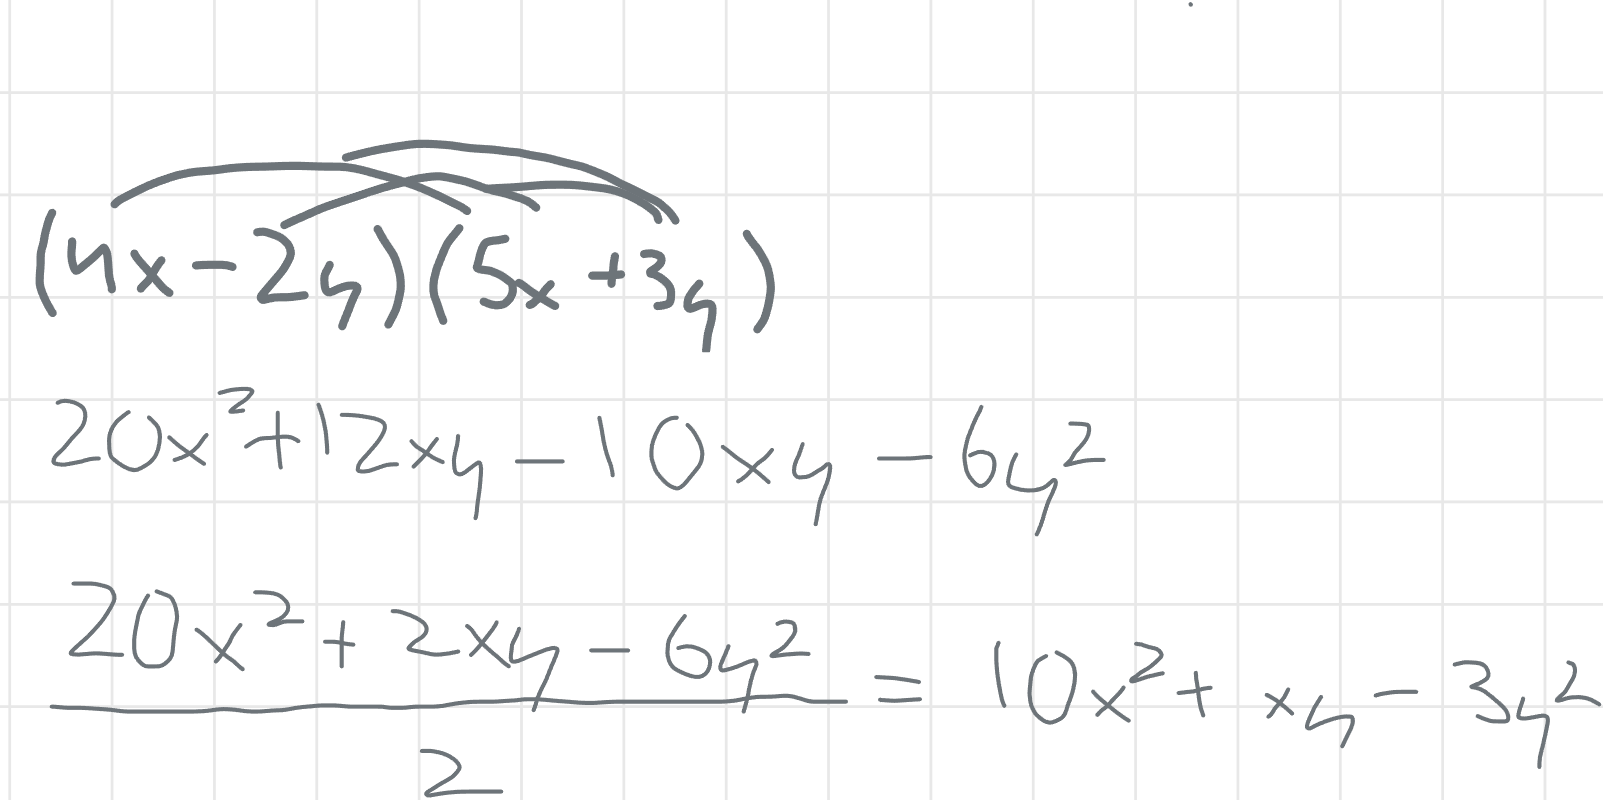 (4x-2y)(5x+3y)
20x²+12xy-10xy-6y²
20x²+2xy-6y²/2 = 10x²+xy-3y²